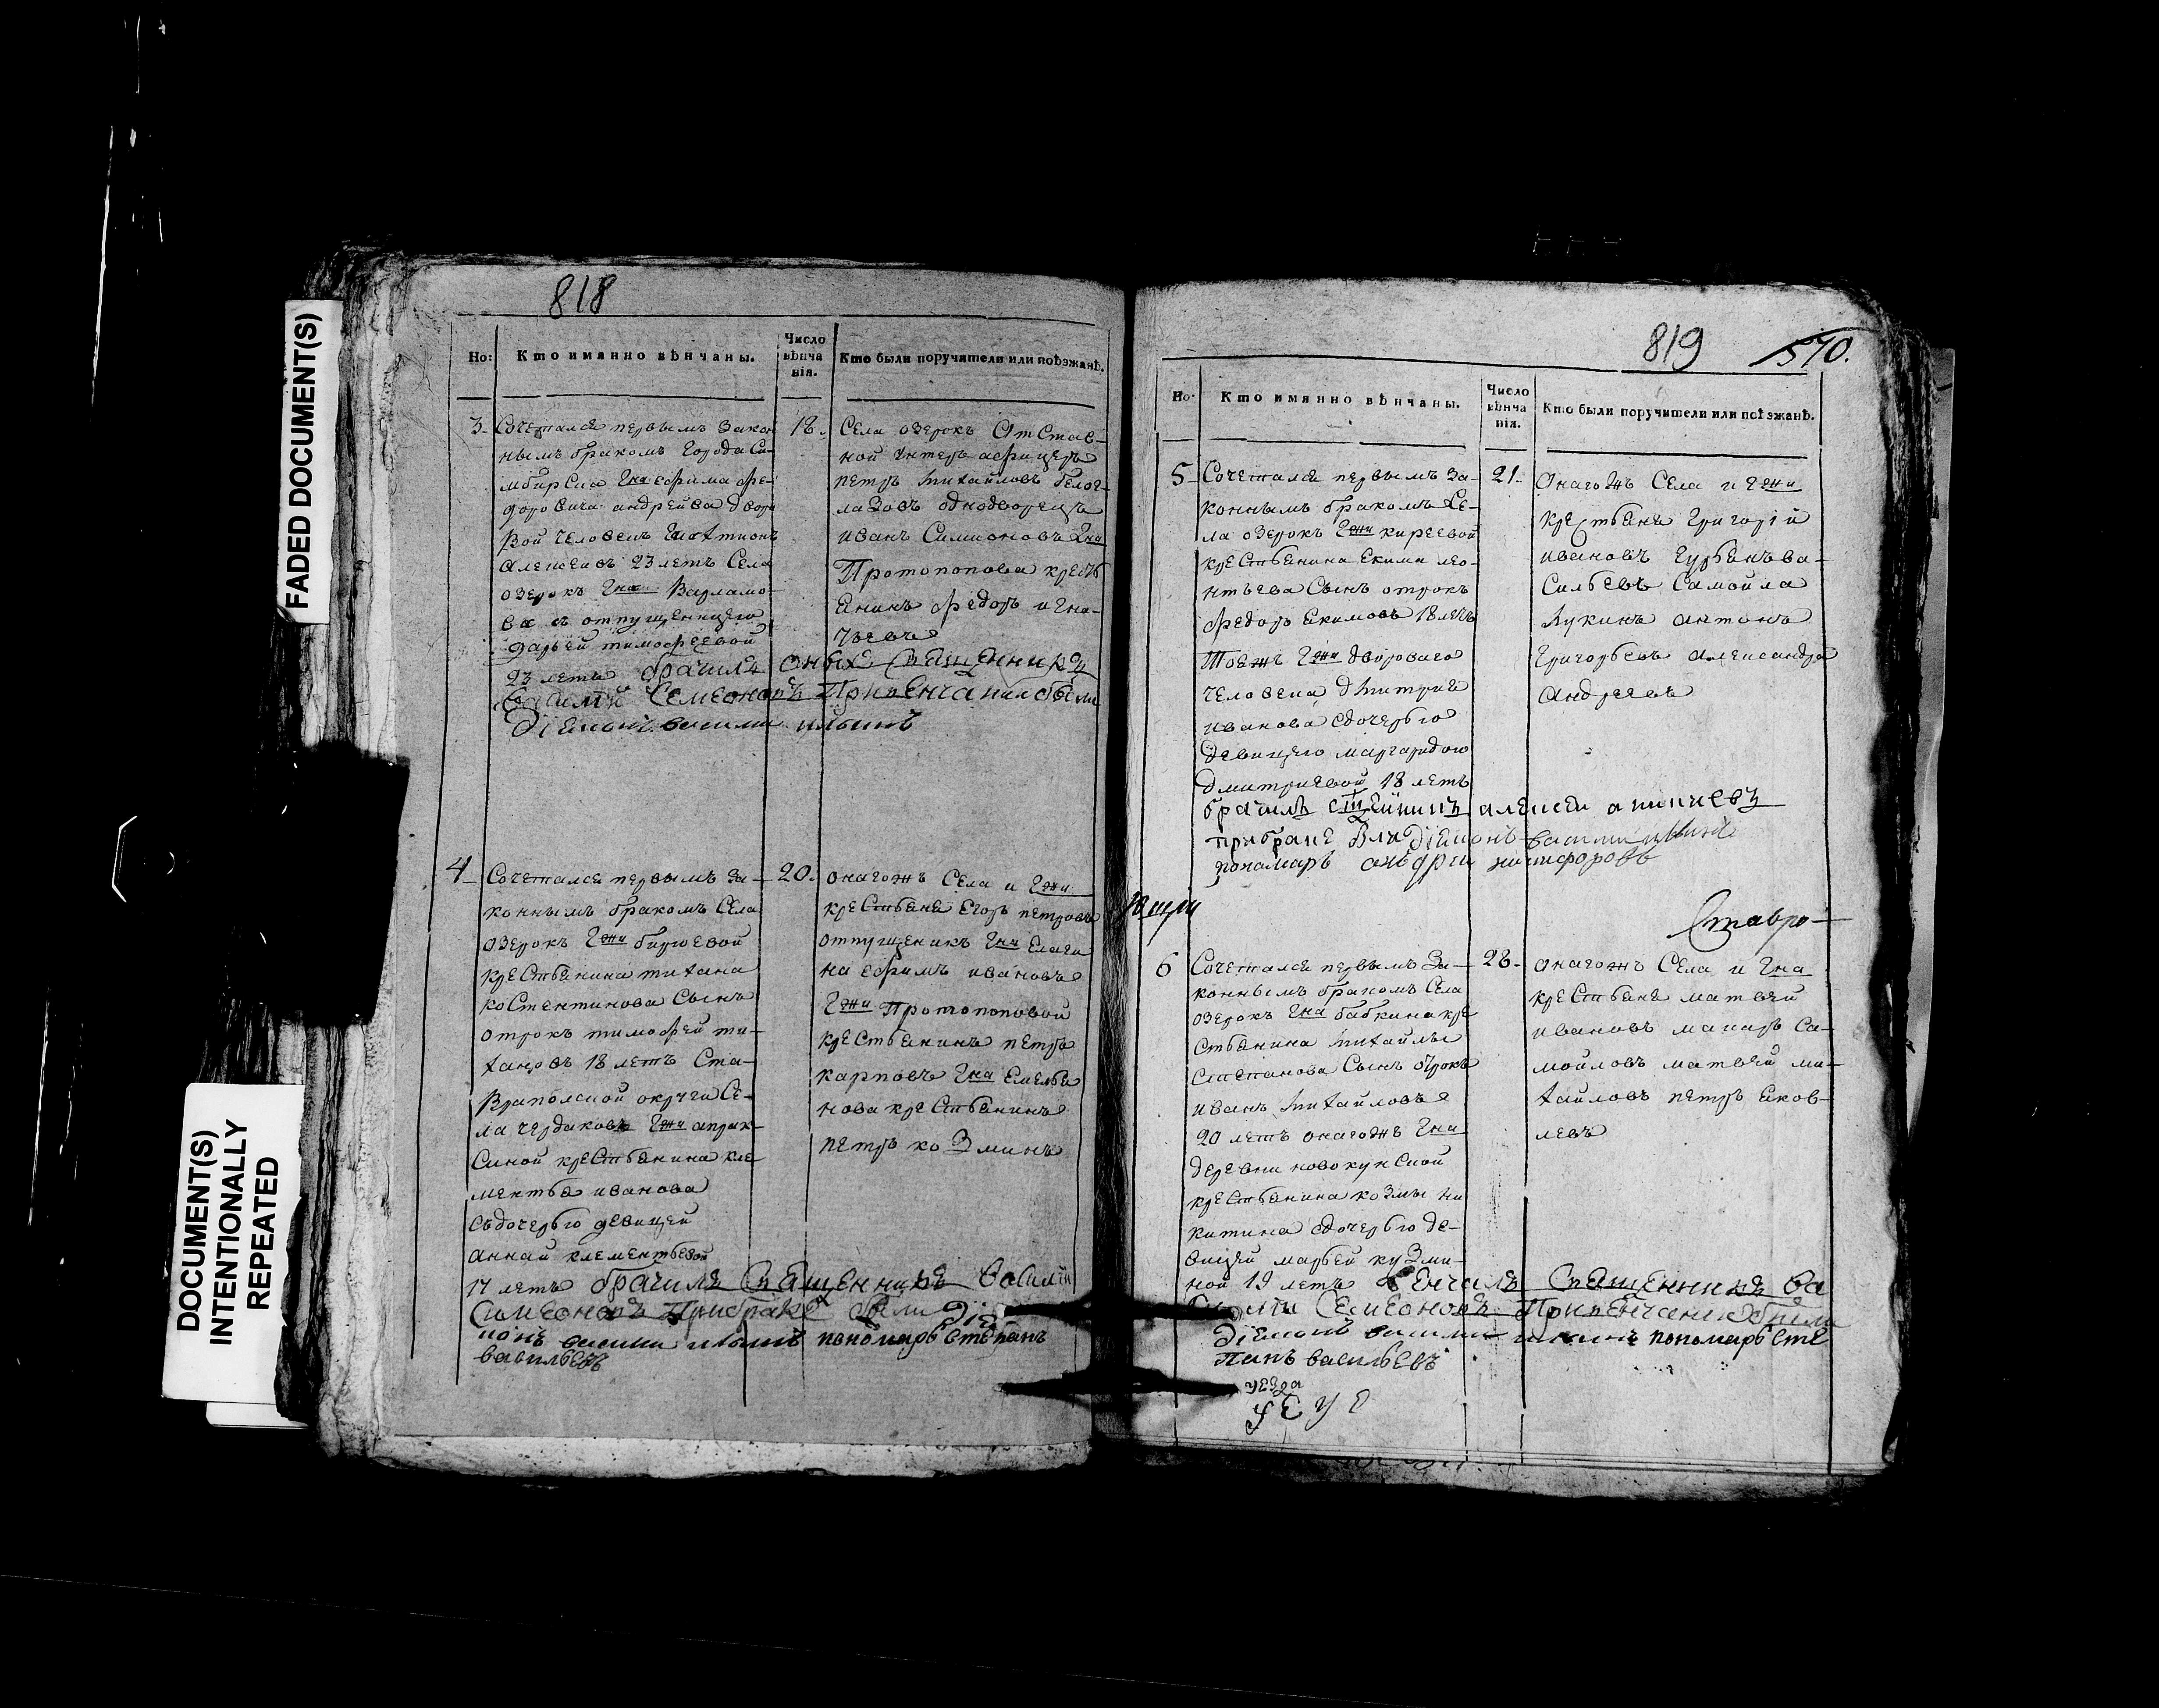 FADED DOCUMENT(S)
DOCUMENT(S)
INTENTIONALLY
REPEATED
818
Но:
Кто имянно вѣнчаны.
Число
вѣнча
нія.
Кто были поручители или поѣзжанѣ.
3
Сочетался первымъ закон
нымъ бракомъ города Си-
мбирска Гна ефима фе-
доровича андреева дворо
вой человекъ
алексеевъ 23 летъ Села
озерокъ Гна Варламо-
ва съ отпущенницею
дарьей тимофеевой
23 летъ брачилъ оныхъ священникъ
Василий Семеоновъ При венчании были
диаконъ василий ильинъ
18.
Села озерокъ Отстав-
ной унтеръ афицеръ
петръ михайловъ белог-
лазовъ однодворецъ
иванъ Симионовъ Гна
Протопопова кресть
янинъ федоръ игна-
тьевъ
4
Сочетался первымъ за-
коннымъ бракомъ Села
озерокъ Гжи бирюевой
крестьянина тихана
костентинова Сынъ
отрокъ тимофей ти-
хановъ 18 летъ Ста-
врапольской округи Се-
ла чердаковъ Гжи апрак-
синой крестьянина кле
ментья иванова
съ дочерью девицей
аннай клементьевой
17 летъ брачилъ Священникъ Василий
Симеоновъ При браке были диа
конъ василий ильинъ пономарь Степанъ
васильевъ
20.
онагожъ Села и Гжи
крестьяне Егоръ петровъ
отпущеникъ Гна Елаги
на ефимъ ивановъ
Гжи Протопоповой
крестьянинъ петръ
карповъ Гна Емелья
нова крестьянинъ
петръ козминъ
819
570.
Но:
Кто имянно вѣнчаны.
Число
вѣнча
нія.
Кто были поручители или поѣзжанѣ.
5
Сочетался первымъ за-
коннымъ бракомъ Се-
ла озерокъ Гжи киреевой
крестьянина Екима лео-
нтьева Сынъ отрокъ
федоръ Екимовъ 18 летъ
Тоежъ Гжи двороваго
человека дмитрия
иванова с дочерью
девицею маргаридою
дмитриевой 18 летъ
брачилъ алексеи
при браке были диаконъ василии ильинъ
пономарь андреи никифоровъ
21.
Онагожъ Села и Гжи
крестьяне Григорій
ивановъ Гурьянъ ва-
сильевъ Самойла
лукинъ антонъ
Григорьевъ александра
андреевъ
Ставро-
6
Сочетался первымъ за-
коннымъ бракомъ Села
озерокъ Гна бабкина кре
стьянина михайлы
степанова Сынъ отрокъ
иванъ михайловъ
20 летъ онагожъ Гна
деревни новокунской
крестьянина козмы ни
китина с дочерью де-
вицей марьей кузми-
ной 19 летъ венчалъ Священникъ Ва
силий Семеоновъ При венчании были
диаконъ василии ильинъ пономарь Сте
панъ васильевъ
уезда
28.
онагожъ Села и Гна
крестьяне матвей
ивановъ макаръ Са-
мойловъ матвей ми-
хайловъ петръ Яков-
левъ